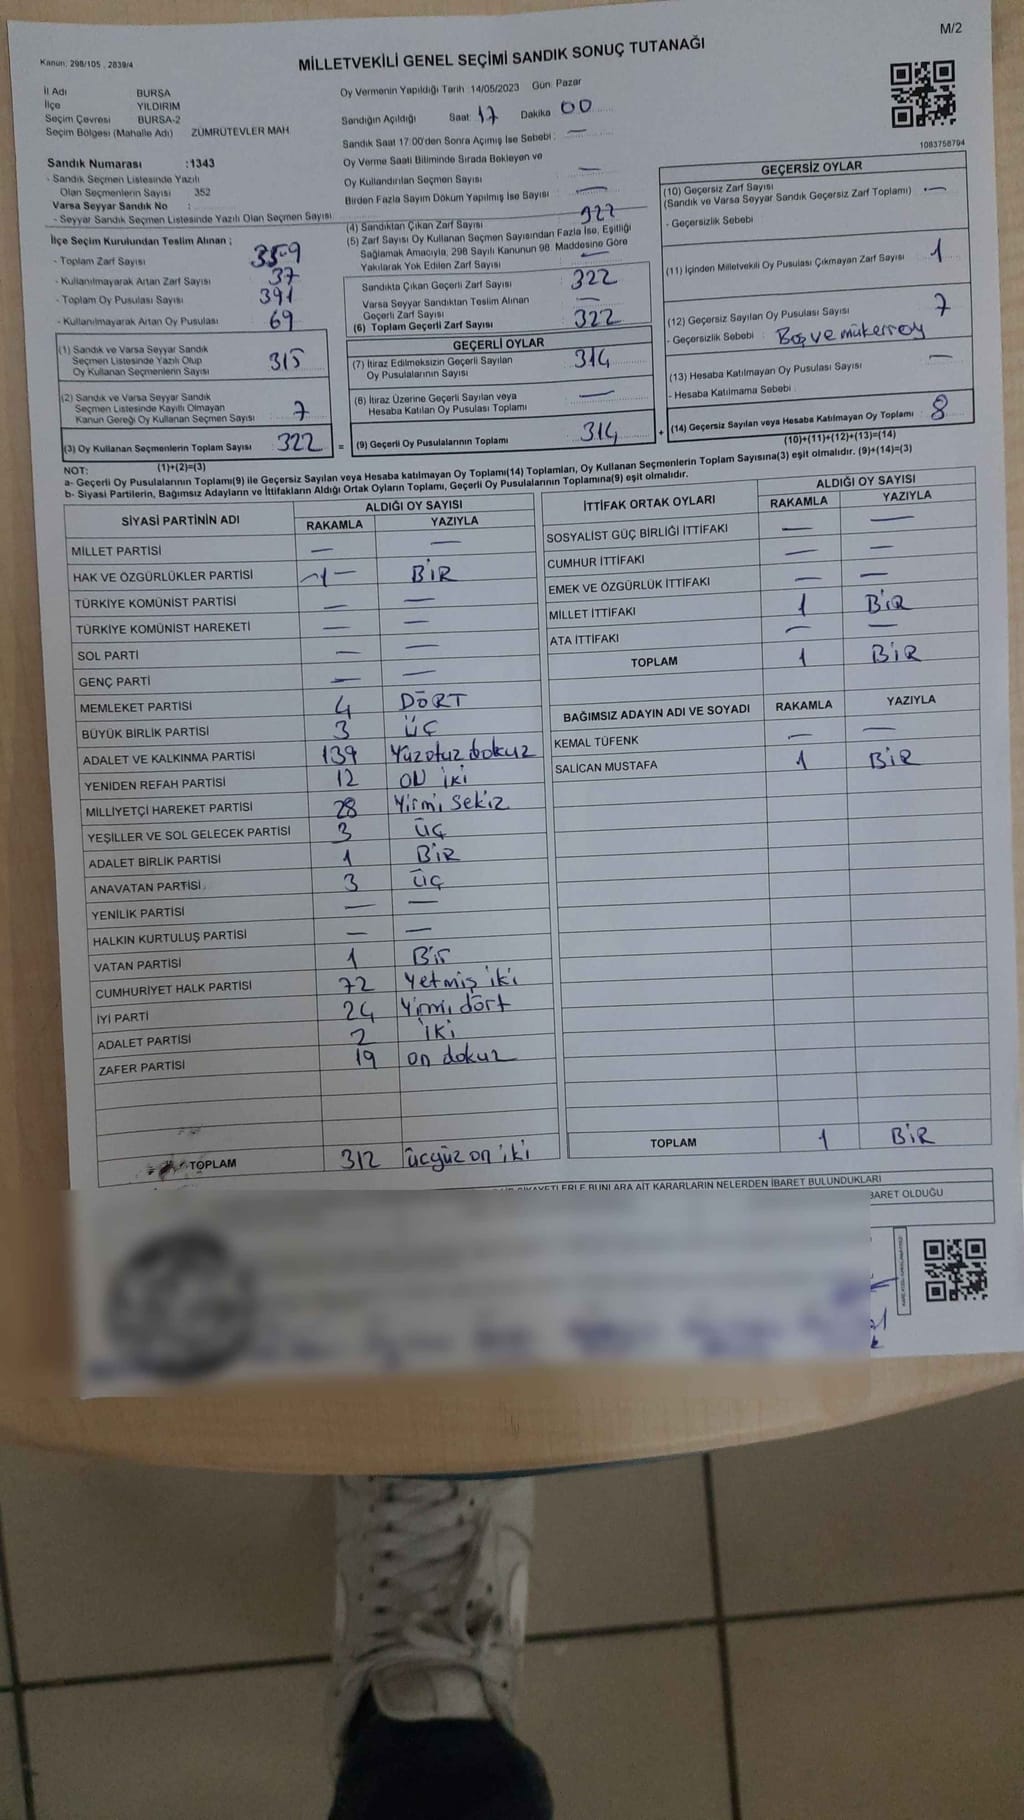 M/2
Kanun: 298/105 , 2839/4
MİLLETVEKİLİ GENEL SEÇİMİ SANDIK SONUÇ TUTANAĞI
İl Adı BURSA
İlçe YILDIRIM
Seçim Çevresi BURSA-2
Seçim Bölgesi (Mahalle Adı) ZÜMRÜTEVLER MAH
Sandık Numarası :1343
- Sandık Seçmen Listesinde Yazılı
Olan Seçmenlerin Sayısı 352
Varsa Seyyar Sandık No :
- Seyyar Sandık Seçmen Listesinde Yazılı Olan Seçmen Sayısı
İlçe Seçim Kurulundan Teslim Alınan ;
- Toplam Zarf Sayısı 359
- Kullanılmayarak Artan Zarf Sayısı 37
- Toplam Oy Pusulası Sayısı 391
- Kullanılmayarak Artan Oy Pusulası 69
(1) Sandık ve Varsa Seyyar Sandık
Seçmen Listesinde Yazılı Olup
Oy Kullanan Seçmenlerin Sayısı 315
(2) Sandık ve Varsa Seyyar Sandık
Seçmen Listesinde Kayıtlı Olmayan
Kanun Gereği Oy Kullanan Seçmen Sayısı : 7
(3) Oy Kullanan Seçmenlerin Toplam Sayısı 322 =
(1)+(2)=(3)
Oy Vermenin Yapıldığı Tarih :14/05/2023 Gün: Pazar
Sandığın Açıldığı Saat: 17 Dakika 00
Sandık Saat 17:00'den Sonra Açımış İse Sebebi : —
Oy Verme Saati Bitiminde Sırada Bekleyen ve
Oy Kullandırılan Seçmen Sayısı —
Birden Fazla Sayım Döküm Yapılmış İse Sayısı —
(4) Sandıktan Çıkan Zarf Sayısı 322
(5) Zarf Sayısı Oy Kullanan Seçmen Sayısından Fazla İse, Eşitliği
Sağlamak Amacıyla, 298 Sayılı Kanunun 98. Maddesine Göre
Yakılarak Yok Edilen Zarf Sayısı —
Sandıkta Çıkan Geçerli Zarf Sayısı 322
Varsa Seyyar Sandıktan Teslim Alınan
Geçerli Zarf Sayısı —
(6) Toplam Geçerli Zarf Sayısı 322
GEÇERLİ OYLAR
(7) İtiraz Edilmeksizin Geçerli Sayılan
Oy Pusulalarının Sayısı 314
(8) İtiraz Üzerine Geçerli Sayılan veya
Hesaba Katılan Oy Pusulası Toplamı —
(9) Geçerli Oy Pusulalarının Toplamı 314 +
1083758794
GEÇERSİZ OYLAR
(10) Geçersiz Zarf Sayısı
(Sandık ve Varsa Seyyar Sandık Geçersiz Zarf Toplamı) —
- Geçersizlik Sebebi
(11) İçinden Milletvekili Oy Pusulası Çıkmayan Zarf Sayısı 1
(12) Geçersiz Sayılan Oy Pusulası Sayısı 7
- Geçersizlik Sebebi : Boş ve mükerrer oy
(13) Hesaba Katılmayan Oy Pusulası Sayısı —
- Hesaba Katılmama Sebebi :
(14) Geçersiz Sayılan veya Hesaba Katılmayan Oy Toplamı : 8
(10)+(11)+(12)+(13)=(14)
NOT:
a- Geçerli Oy Pusulalarının Toplamı(9) ile Geçersiz Sayılan veya Hesaba katılmayan Oy Toplamı(14) Toplamları, Oy Kullanan Seçmenlerin Toplam Sayısına(3) eşit olmalıdır. (9)+(14)=(3)
b- Siyasi Partilerin, Bağımsız Adayların ve İttifakların Aldığı Ortak Oyların Toplamı, Geçerli Oy Pusulalarının Toplamına(9) eşit olmalıdır.
SİYASİ PARTİNİN ADI ALDIĞI OY SAYISI
RAKAMLA YAZIYLA
MİLLET PARTİSİ — —
HAK VE ÖZGÜRLÜKLER PARTİSİ -1- BİR
TÜRKİYE KOMÜNİST PARTİSİ — —
TÜRKİYE KOMÜNİST HAREKETİ — —
SOL PARTİ — —
GENÇ PARTİ — —
MEMLEKET PARTİSİ 4 DÖRT
BÜYÜK BİRLİK PARTİSİ 3 ÜÇ
ADALET VE KALKINMA PARTİSİ 139 Yüzotuz dokuz
YENİDEN REFAH PARTİSİ 12 ON İKİ
MİLLİYETÇİ HAREKET PARTİSİ 28 Yirmi Sekiz
YEŞİLLER VE SOL GELECEK PARTİSİ 3 ÜÇ
ADALET BİRLİK PARTİSİ 1 BİR
ANAVATAN PARTİSİ 3 ÜÇ
YENİLİK PARTİSİ — —
HALKIN KURTULUŞ PARTİSİ — —
VATAN PARTİSİ 1 Bir
CUMHURİYET HALK PARTİSİ 72 Yetmiş iki
İYİ PARTİ 24 Yirmi dört
ADALET PARTİSİ 2 iki
ZAFER PARTİSİ 19 on dokuz
TOPLAM 312 üçyüz on iki
İTTİFAK ORTAK OYLARI ALDIĞI OY SAYISI
RAKAMLA YAZIYLA
SOSYALİST GÜÇ BİRLİĞİ İTTİFAKI — —
CUMHUR İTTİFAKI — —
EMEK VE ÖZGÜRLÜK İTTİFAKI — —
MİLLET İTTİFAKI 1 BİR
ATA İTTİFAKI — —
TOPLAM 1 BİR
BAĞIMSIZ ADAYIN ADI VE SOYADI RAKAMLA YAZIYLA
KEMAL TÜFENK — —
SALİCAN MUSTAFA 1 BİR
TOPLAM 1 BİR
ERLE BUNLARA AİT KARARLARIN NELERDEN İBARET BULUNDUKLARI
BARET OLDUĞU